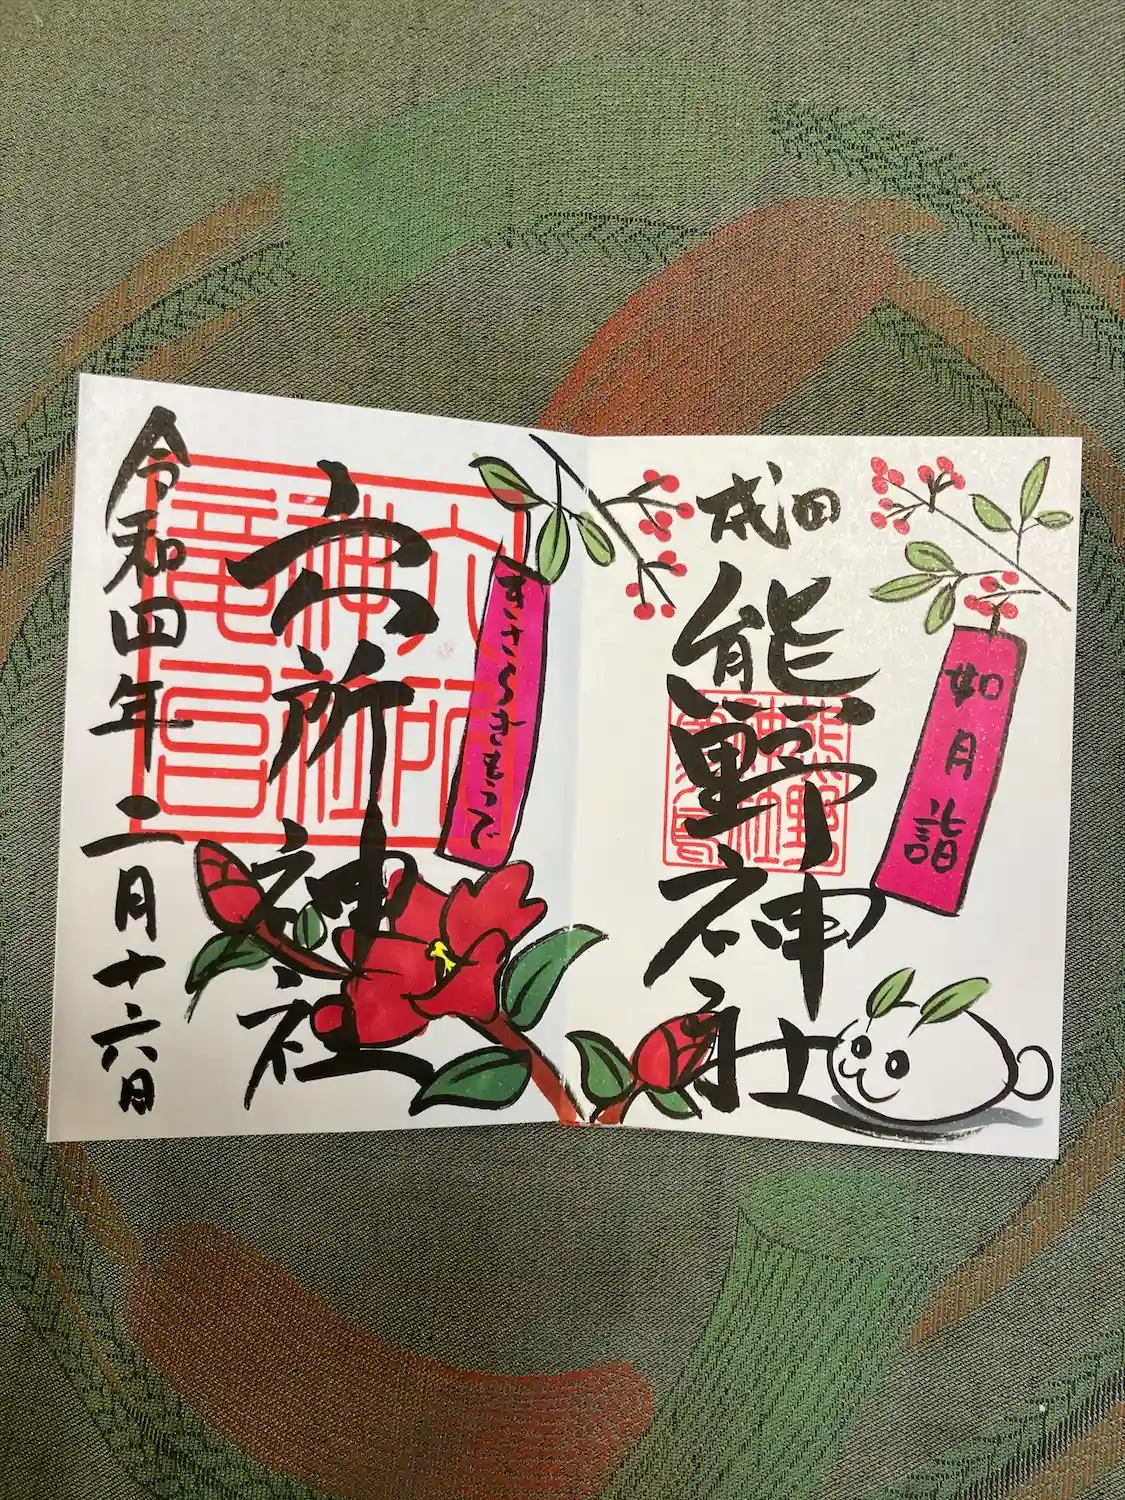 如月
詣
成田
熊野神社
熊野
神社
きさらぎもうで
六所神社
六所
神社
令和四年二月十六日